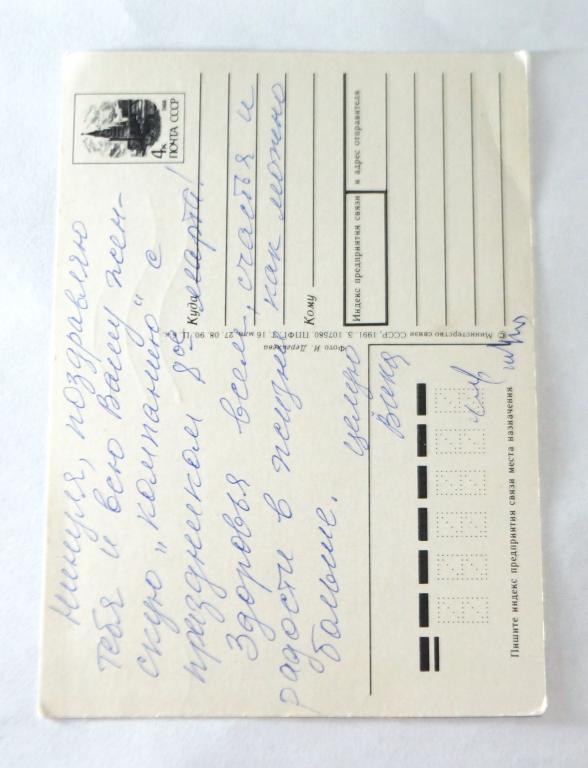 Нинуля, поздравляю
тебя и всю Вашу жен-
скую „компанию" с
праздником 8ое марта!
Здоровья всем, счастья и
радости в жизни как можно
больше.
целую
Вика
4к
1988
ПОЧТА СССР
Куда
Кому
Индекс предприятия связи и адрес отправителя
© Министерство связи СССР, 1991. З. 107580. ППФГ. 27. 08. 90. Ц.
Фото И.
Пишите индекс предприятия связи места назначения